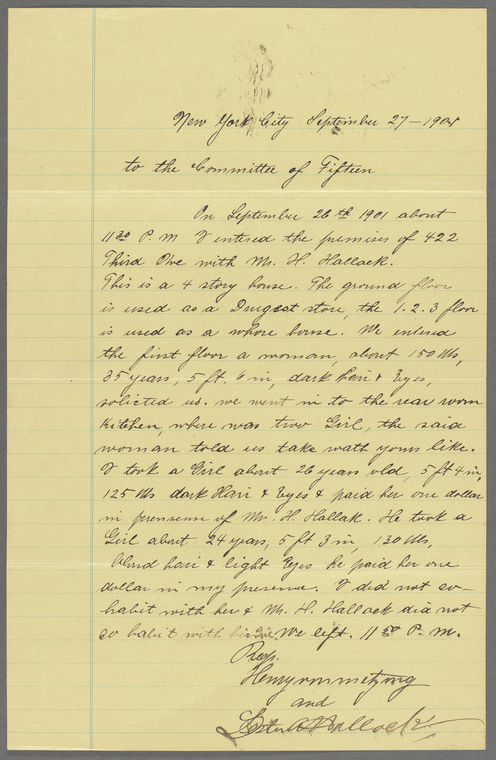 New York City September 27 - 1901
to the Committee of Fifteen
On September 26th 1901 about
11 30 P. M I entered the premises of 422
Third Ave with Mr. H. Hallack.
This is a 4 story house. The ground floor
is used as a Drugest store, the 1. 2. 3 floor
is used as a whore house. We entered
the first floor a woman, about 150 lbs,
35 years, 5 ft. 6 in, dark hair & Eyes,
solicited us. we went in to the rear room
Kitchen, where was two Girl, the said
woman told us take wath yours like.
I took a Girl about 26 years old, 5 ft 4 in,
125 lbs dark Hair & Eyes & paid her one dollar
in prensense of Mr. H. Hallak. He took a
Girl about 24 years, 5 ft 3 in, 130 lbs,
blund hair & light Eyes he paid her one
dollar in my presense. I did not co-
habit with her & Mr. H. Hallack did not
co habit with his Girl. We left. 11 50 P. M.
Resp.
Henry
and
Hallock